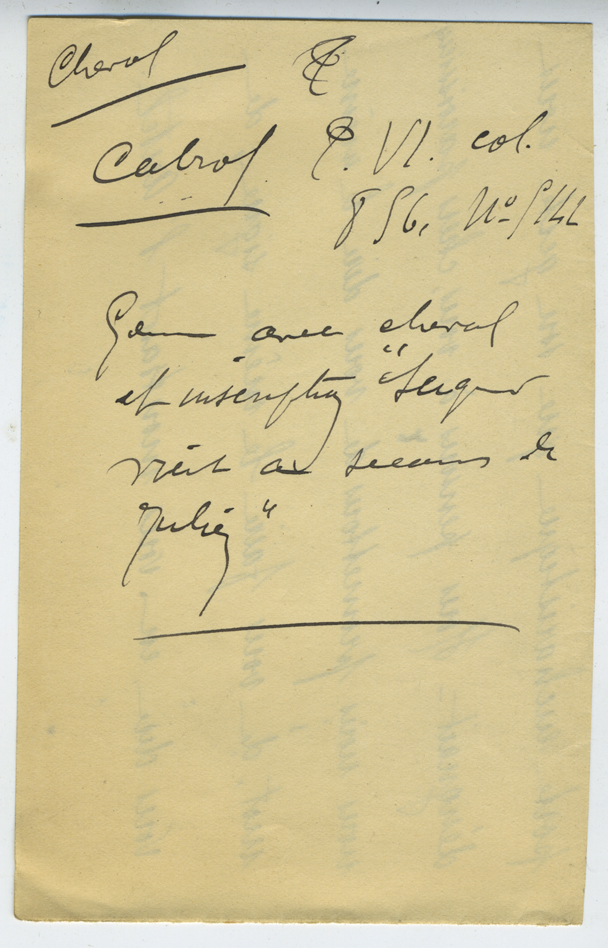 Cheval
Cabrol T. VI. col.
856, No 5142
Gemme avec cheval
et inscription "Seigneur
vient au secours de
Julien"